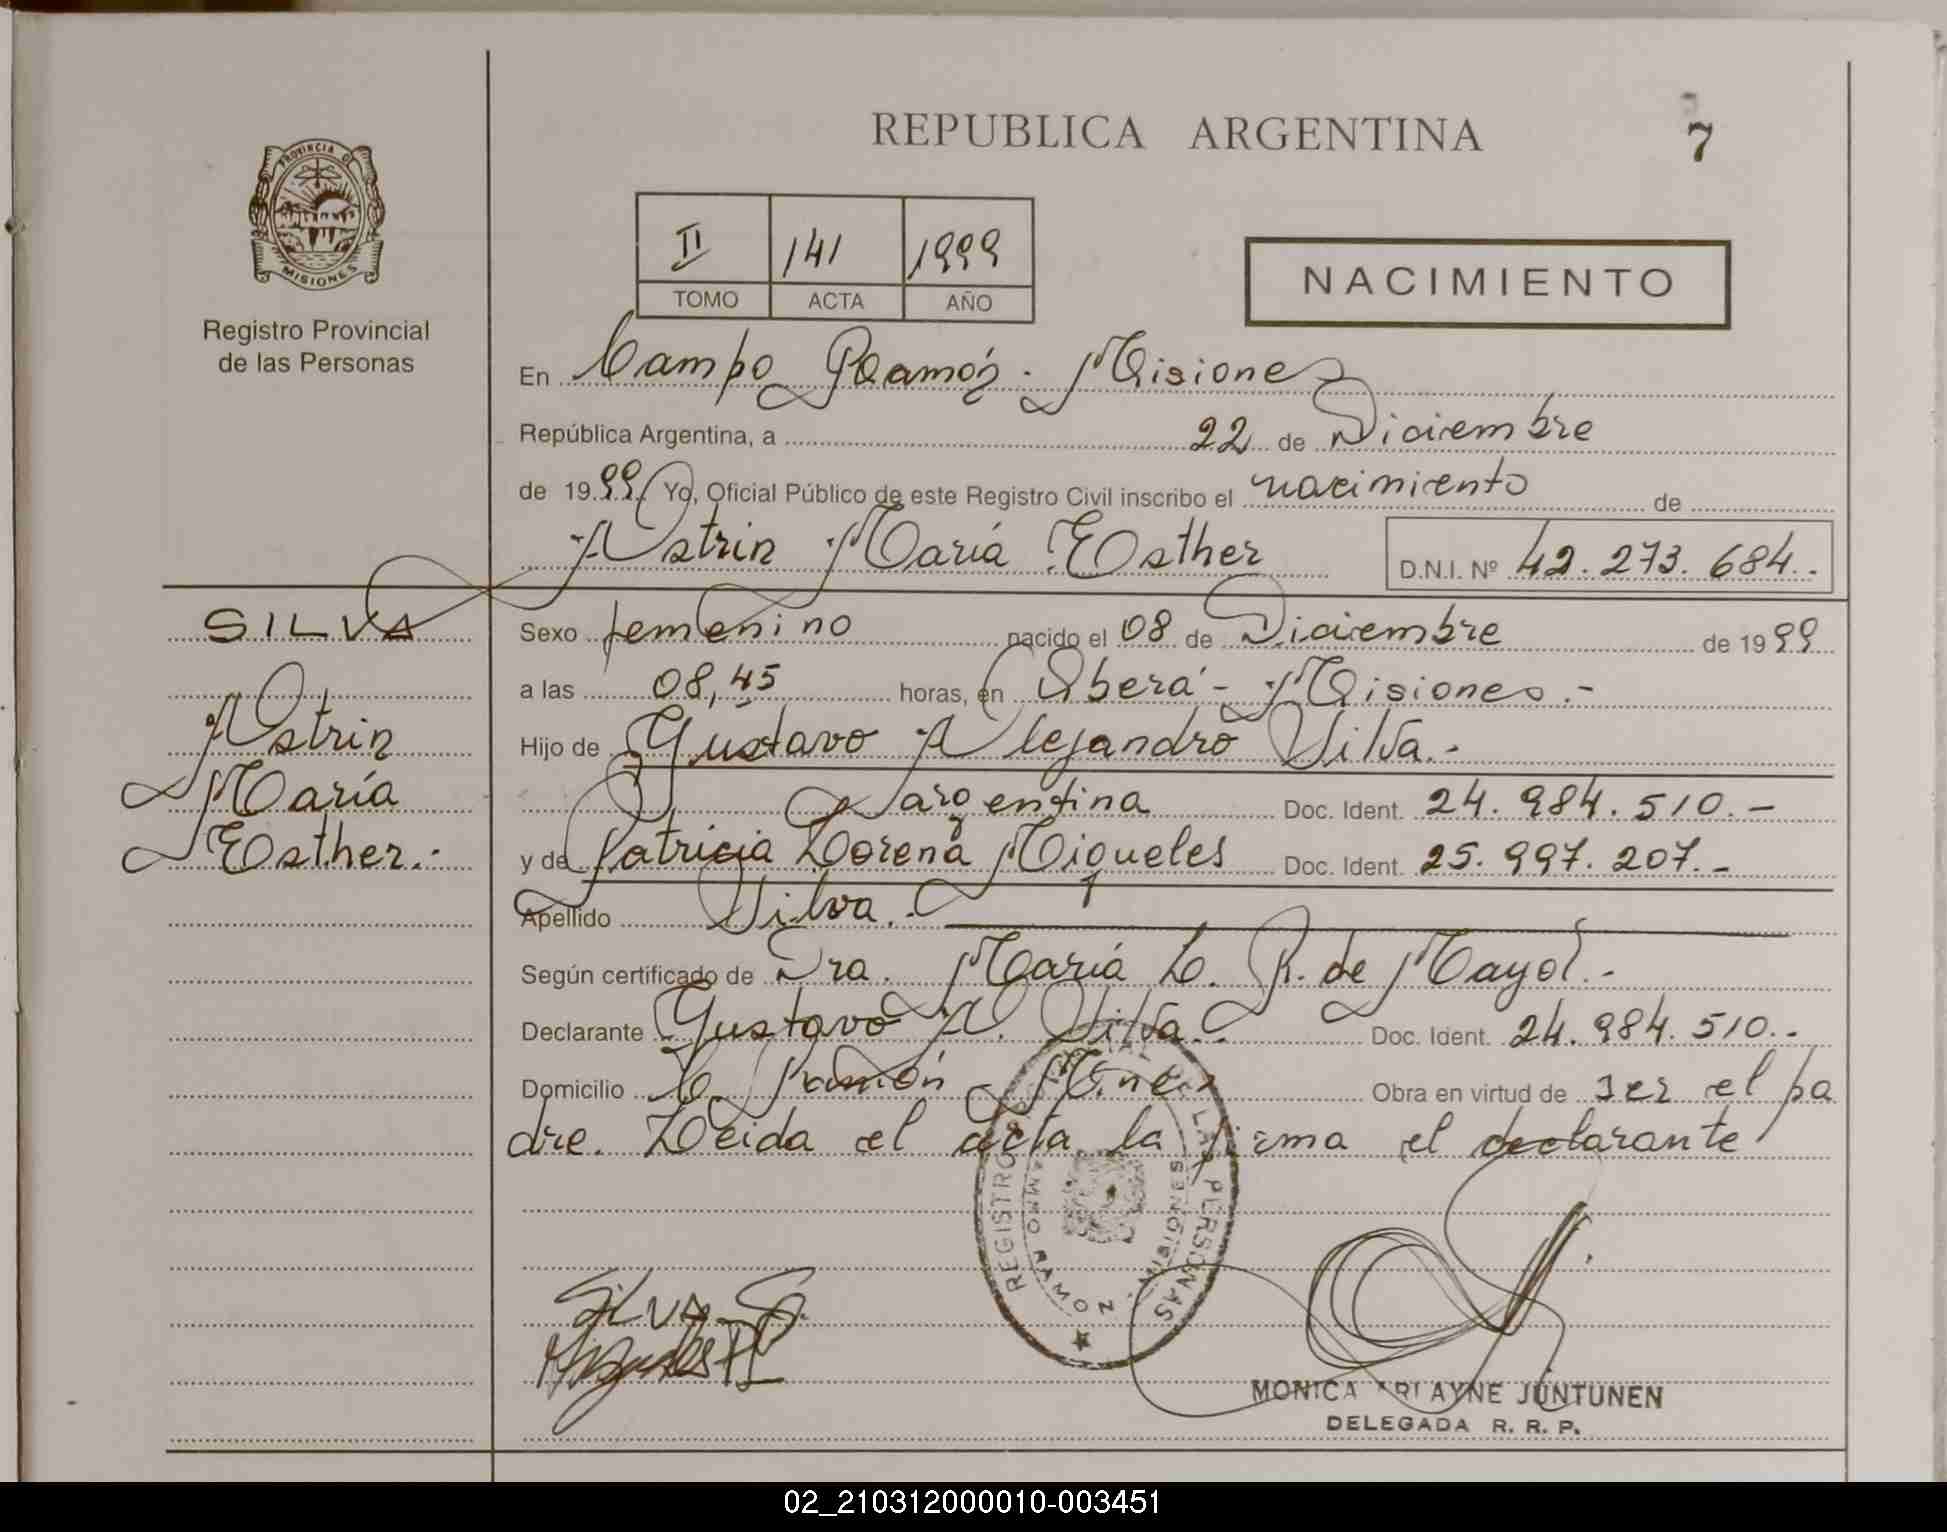 REPUBLICA ARGENTINA
7
PROVINCIA D
MISIONES
Registro Provincial
de las Personas
II 141 1999
TOMO ACTA AÑO
NACIMIENTO
En Campo Ramón. Misiones
República Argentina, a 22 de Diciembre
de 1999 Yo, Oficial Público de este Registro Civil inscribo el nacimiento de
Astrin María Esther
D.N.I. Nº 42.273.684.
SILVA
Astrin
María
Esther.-
Sexo femenino nacido el 08 de Diciembre de 1999
a las 08,45 horas, en Oberá - Misiones.-
Hijo de Gustavo Alejandro Silva.-
argentina Doc. Ident. 24.984.510.-
y de Patricia Lorena Miqueles Doc. Ident. 25.997.207.-
Apellido Silva.-
Según certificado de Dra. María L. R. de Mayol.-
Declarante Gustavo A. Silva.- Doc. Ident. 24.984.510.-
Domicilio C. Ramón - Mnes Obra en virtud de ser el pa
dre. Leida el acta la firma el declarante
REGISTRO PROVINCIAL DE LAS PERSONAS
CAMPO RAMON - MISIONES
SILVA G.
MONICA ARLAYNE JUNTUNEN
DELEGADA R. R. P.
02_210312000010-003451